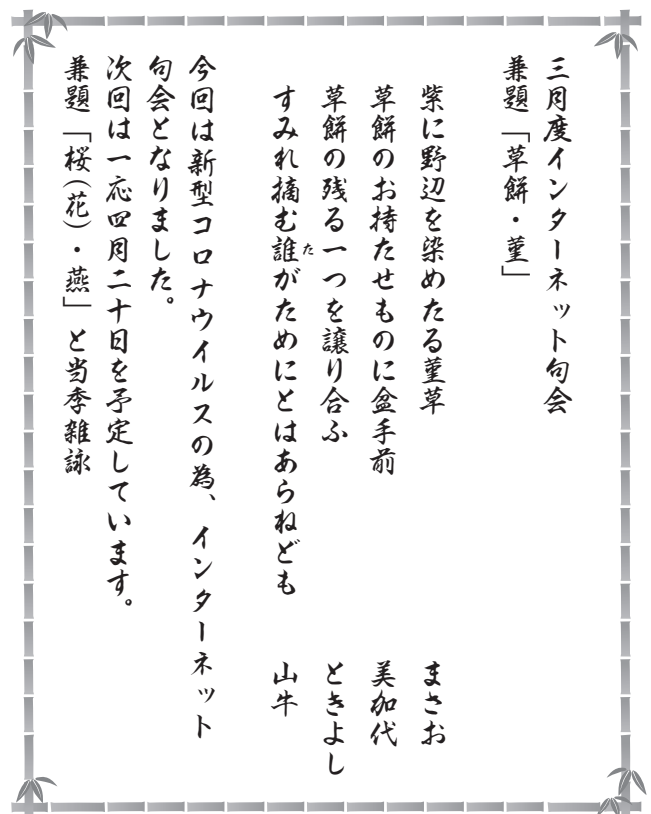 三月度インターネット句会
兼題「草餅・菫」
紫に野辺を染めたる菫草　まさお
草餅のお持たせものに盆手前　美加代
草餅の残る一つを譲り合ふ　ときよし
すみれ摘む誰がためにとはあらねども　山牛
た
今回は新型コロナウイルスの為、インターネット
句会となりました。
次回は一応四月二十日を予定しています。
兼題「桜(花)・燕」と当季雑詠